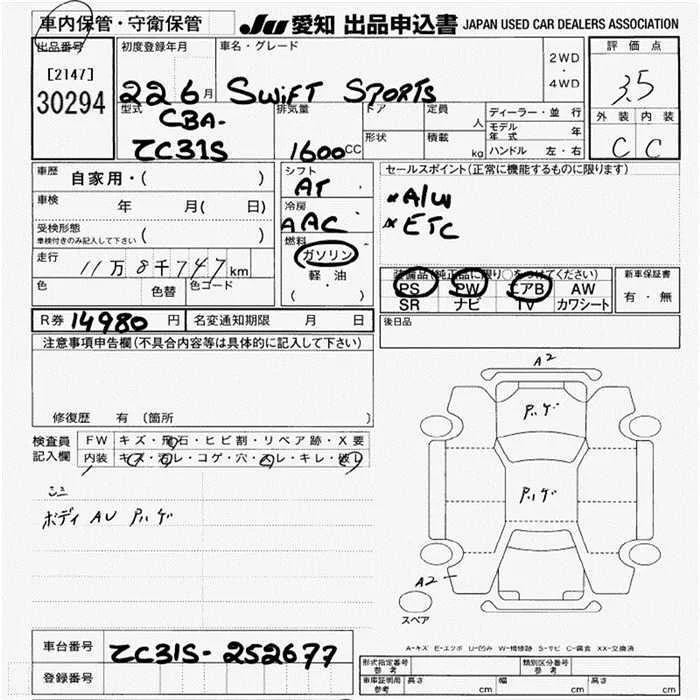 車内保管・守衛保管
JU 愛知 出品申込書 JAPAN USED CAR DEALERS ASSOCIATION
出品番号
[2147]
30294
初度登録年月
22 6 月
車名・グレード
SWIFT SPORTS
2WD
・
4WD
評価点
3.5
外装 内装
C C
型式
CBA-
ZC31S
排気量
1600 CC
ドア
形状
定員
人
積載
kg
ディーラー・並行
モデル年式 年
ハンドル 左・右
車歴 自家用・( )
車検 年 月( 日)
受検形態
車検付きのみ記入して下さい ( )
走行 11万8千747km
色 色替 色コード
シフト
AT
冷房
AAC
燃料
ガソリン
軽油
( ・ )
セールスポイント(正常に機能するものに限ります)
*A/W
*ETC
装備品(純正品に限り○をつけてください)
PS PW エアB AW
SR ナビ TV カワシート
新車保証書
有・無
R券 14980 円 名変通知期限 月 日
後日品
注意事項申告欄(不具合内容等は具体的に記入して下さい)
修復歴 有 (箇所 )
検査員
記入欄
FW キズ・飛石・ヒビ割・リペア跡・X要
内装 キズ・汚レ・コゲ・穴・スレ・キレ・破レ
ボディ AU ハゲ
A2
ハゲ
ハゲ
A2
スペア
A-キズ E-エクボ U-凹み W-補修跡 S-サビ C-腐食 XX-交換済
車台番号 ZC31S-252677
登録番号
形式指定番号
参考
類別区分番号
参考
車庫証明用
参考
長さ cm 幅 cm 高さ cm